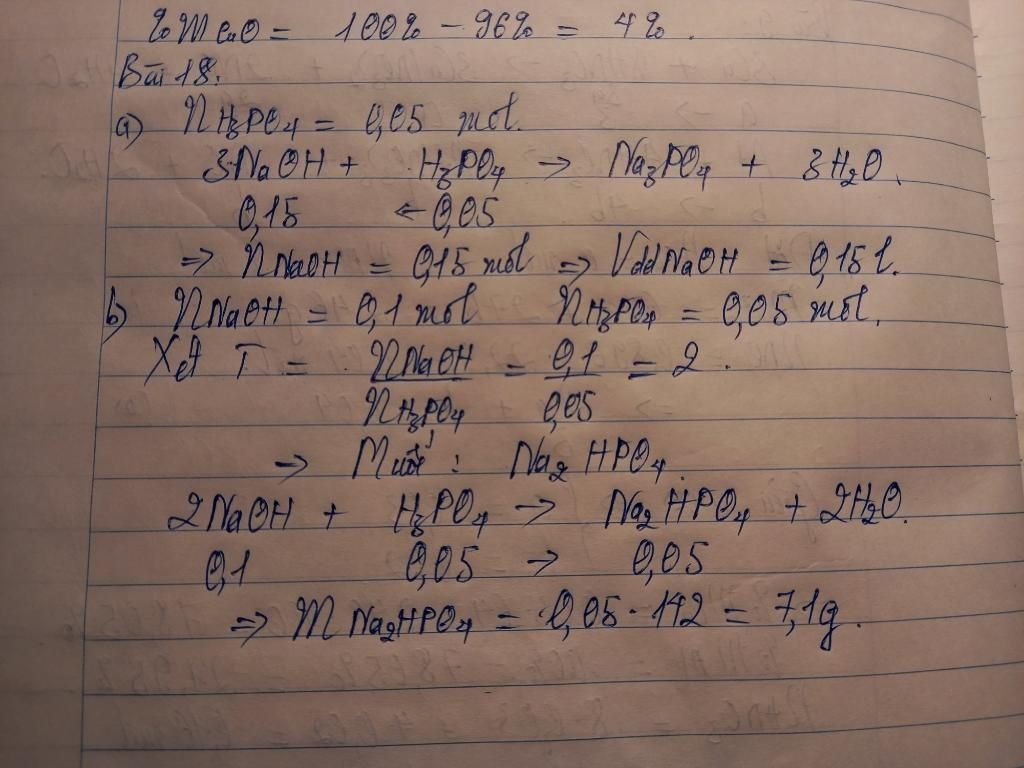 %mCuO = 100% - 96% = 4%.
Bài 18.
a) nH3PO4 = 0,05 mol.
3NaOH + H3PO4 → Na3PO4 + 3H2O.
0,15 ← 0,05
⇒ nNaOH = 0,15 mol ⇒ VddNaOH = 0,15 l.
b) nNaOH = 0,1 mol nH3PO4 = 0,05 mol.
Xét T = nNaOH / nH3PO4 = 0,1 / 0,05 = 2.
→ Muối: Na2HPO4.
2NaOH + H3PO4 → Na2HPO4 + 2H2O.
0,1 0,05 → 0,05
⇒ mNa2HPO4 = 0,05 . 142 = 7,1g.